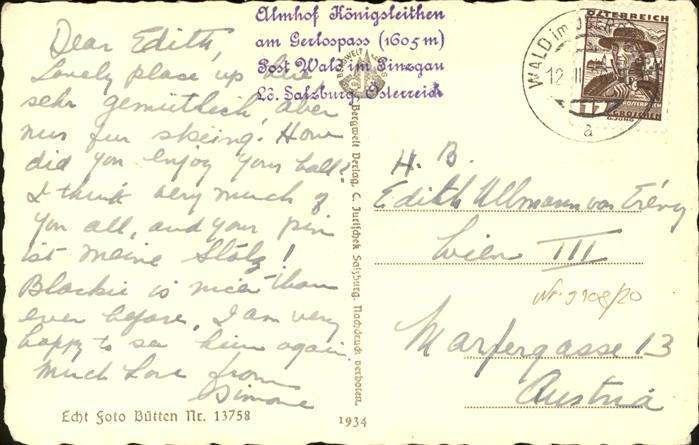 Almhof Königsleithen
am Gerlospass (1605 m)
Post Wald im Pinzgau
Ld. Salzburg, Österreich
Dear Edith,
Lovely place up here
sehr gemütlich, aber
nur for skiing. How
did you enjoy your ball?
I think very much of
you all, and your pin
ist meine Stolz!
Blackie is nicer than
ever before. I am very
happy to see him again.
Much Love from
Simone
Echt Foto Bütten Nr. 13758
1934
Bergwelt Verlag, C. Jurischek Salzburg. Nachdruck verboten.
ÖSTERREICH
WALD im
12. II
a
H. B.
Edith Ullmann von
Wien III
Nr. 3908/20
Marxergasse 13
Austria